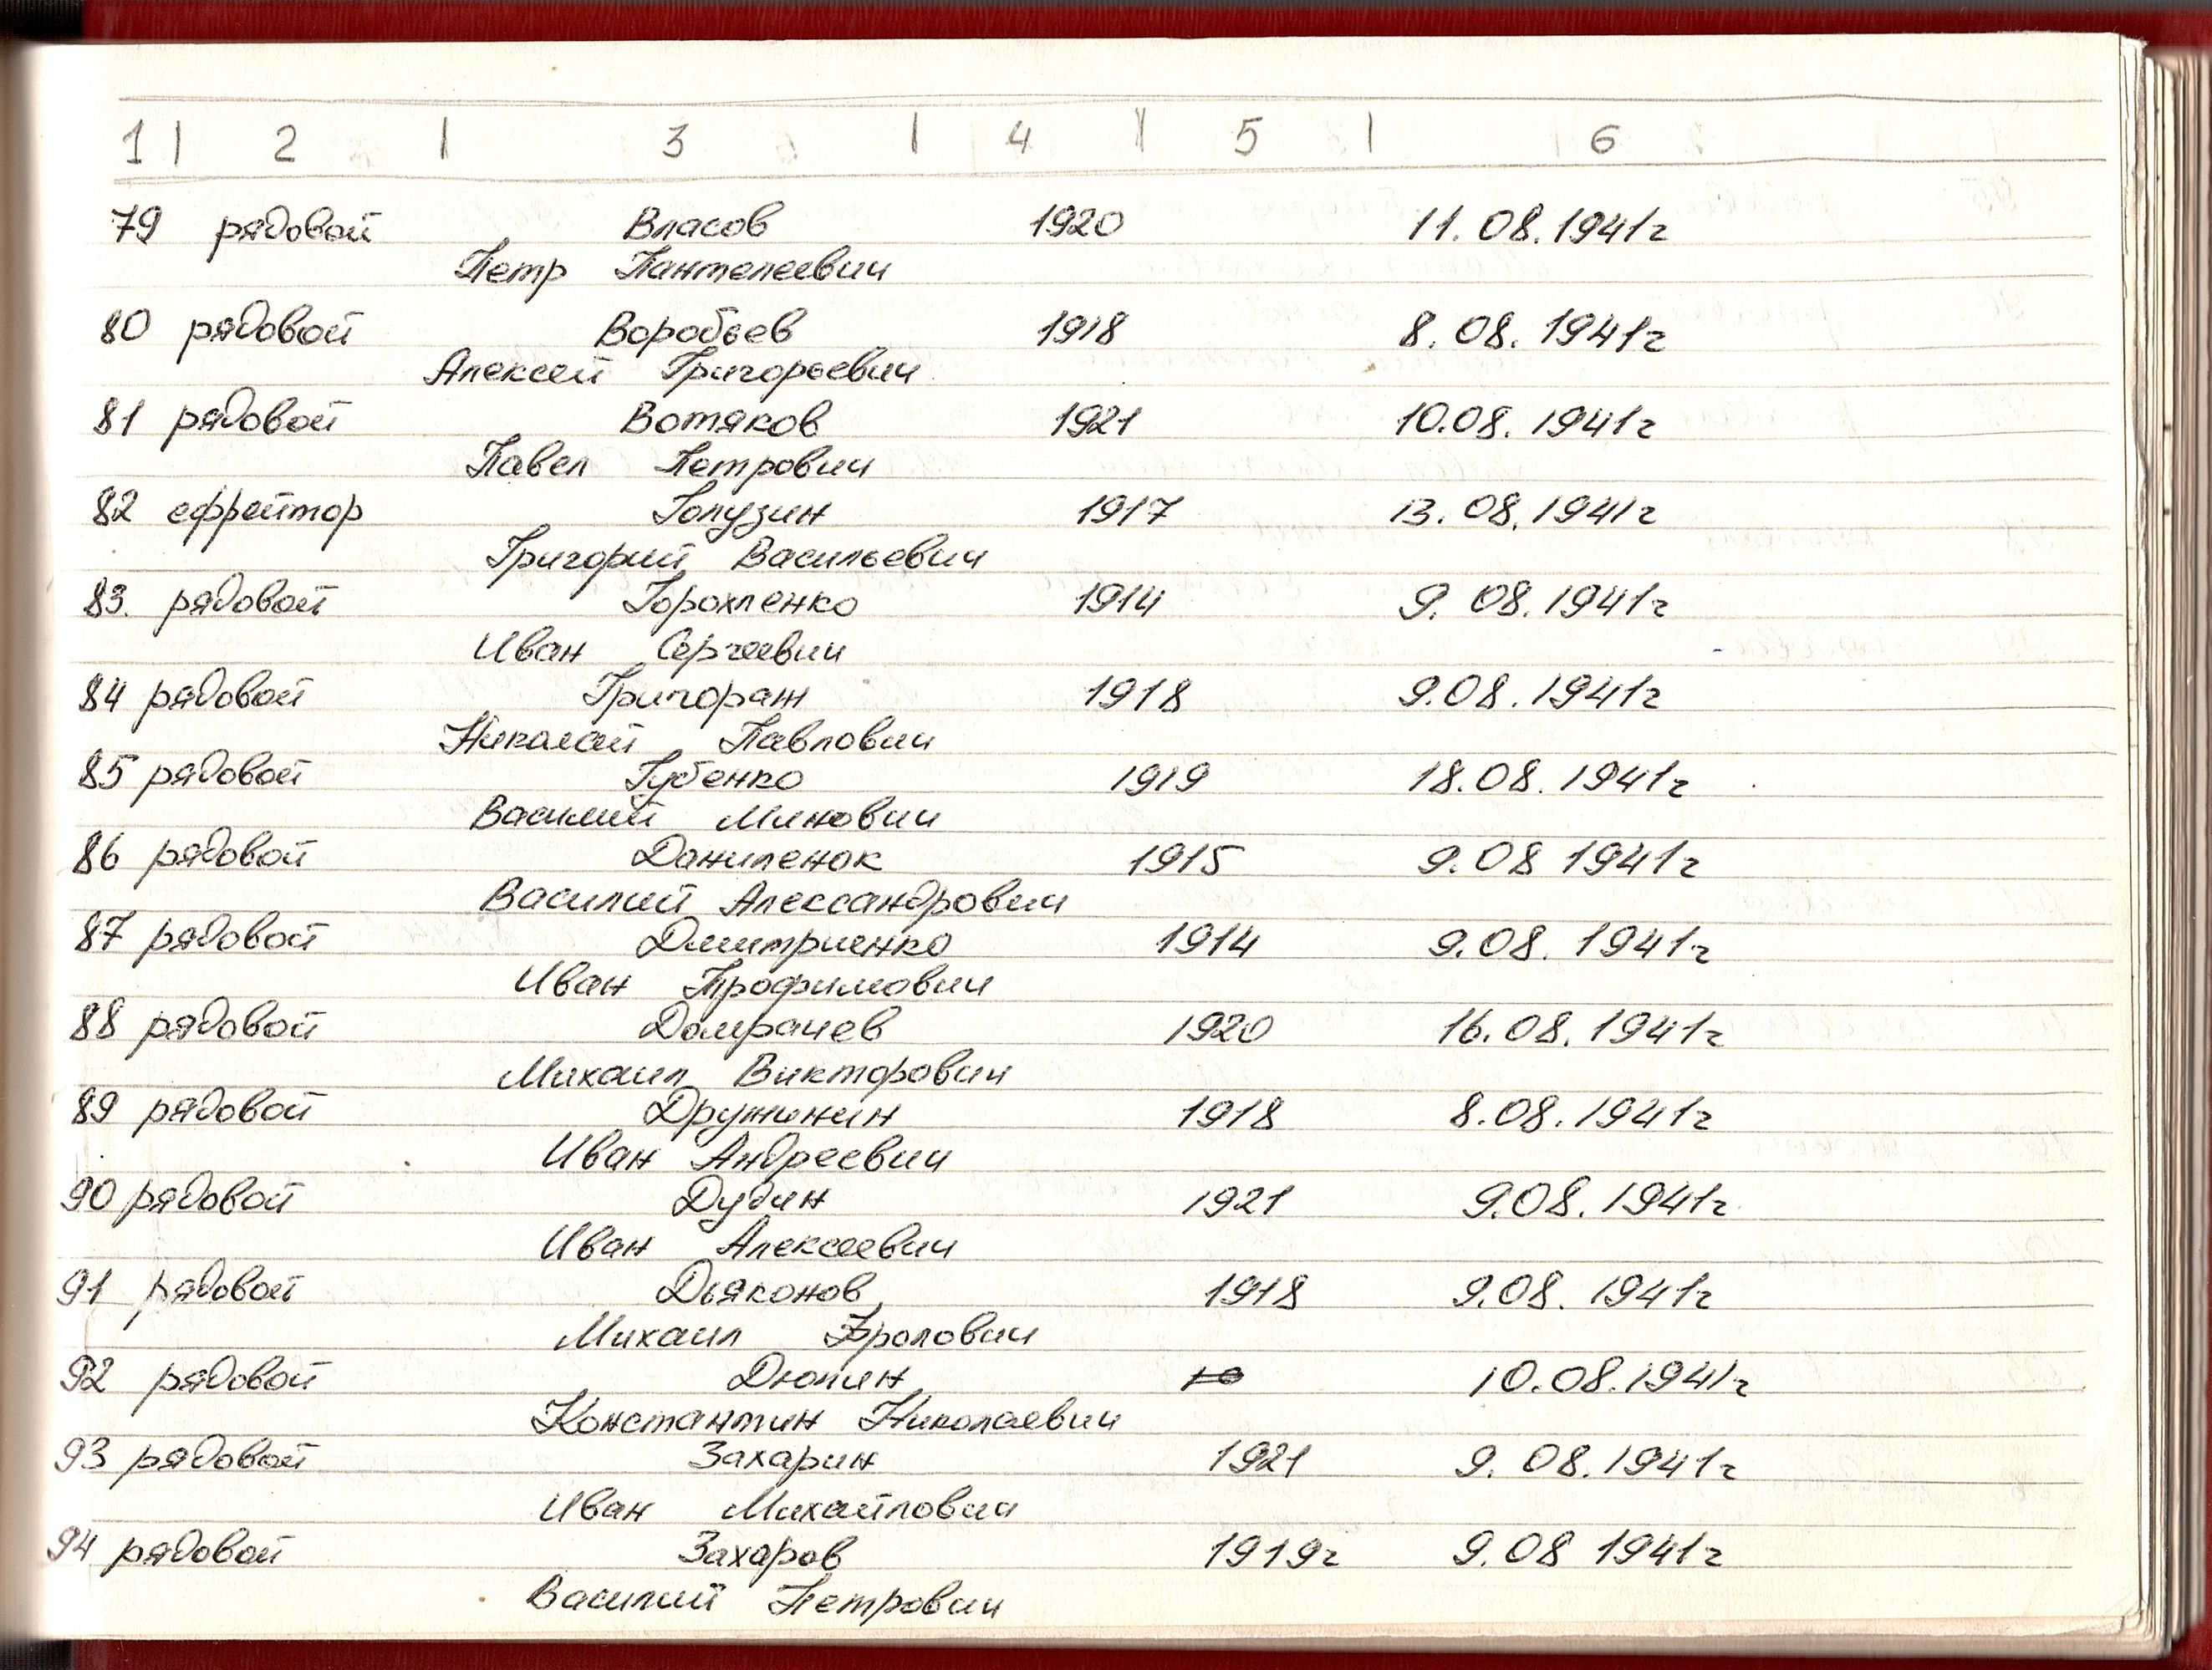 1 | 2 | 3 | 4 | 5 | 6
79 рядовой Власов 1920 11.08.1941г
Петр Пантелеевич
80 рядовой Воробьев 1918 8.08.1941г
Алексей Григорьевич
81 рядовой Вотяков 1921 10.08.1941г
Павел Петрович
82 ефрейтор Голузин 1917 13.08.1941г
Григорий Васильевич
83. рядовой Горохленко 1914 9.08.1941г
Иван Сергеевич
84 рядовой Григораж 1918 9.08.1941г
Николай Павлович
85 рядовой Губенко 1919 18.08.1941г
Василий Минович
86 рядовой Даниленок 1915 9.08 1941г
Василий Александрович
87 рядовой Дмитриенко 1914 9.08.1941г
Иван Трофимович
88 рядовой Домрачев 1920 16.08.1941г
Михаил Викторович
89 рядовой Дружинин 1918 8.08.1941г
Иван Андреевич
90 рядовой Дубин 1921 9.08.1941г
Иван Алексеевич
91 рядовой Дьяконов 1918 9.08.1941г
Михаил Фролович
92 рядовой Дюпин 10.08.1941г
Константин Николаевич
93 рядовой Захарин 1921 9.08.1941г
Иван Михайлович
94 рядовой Захаров 1919г 9.08 1941г
Василий Петрович